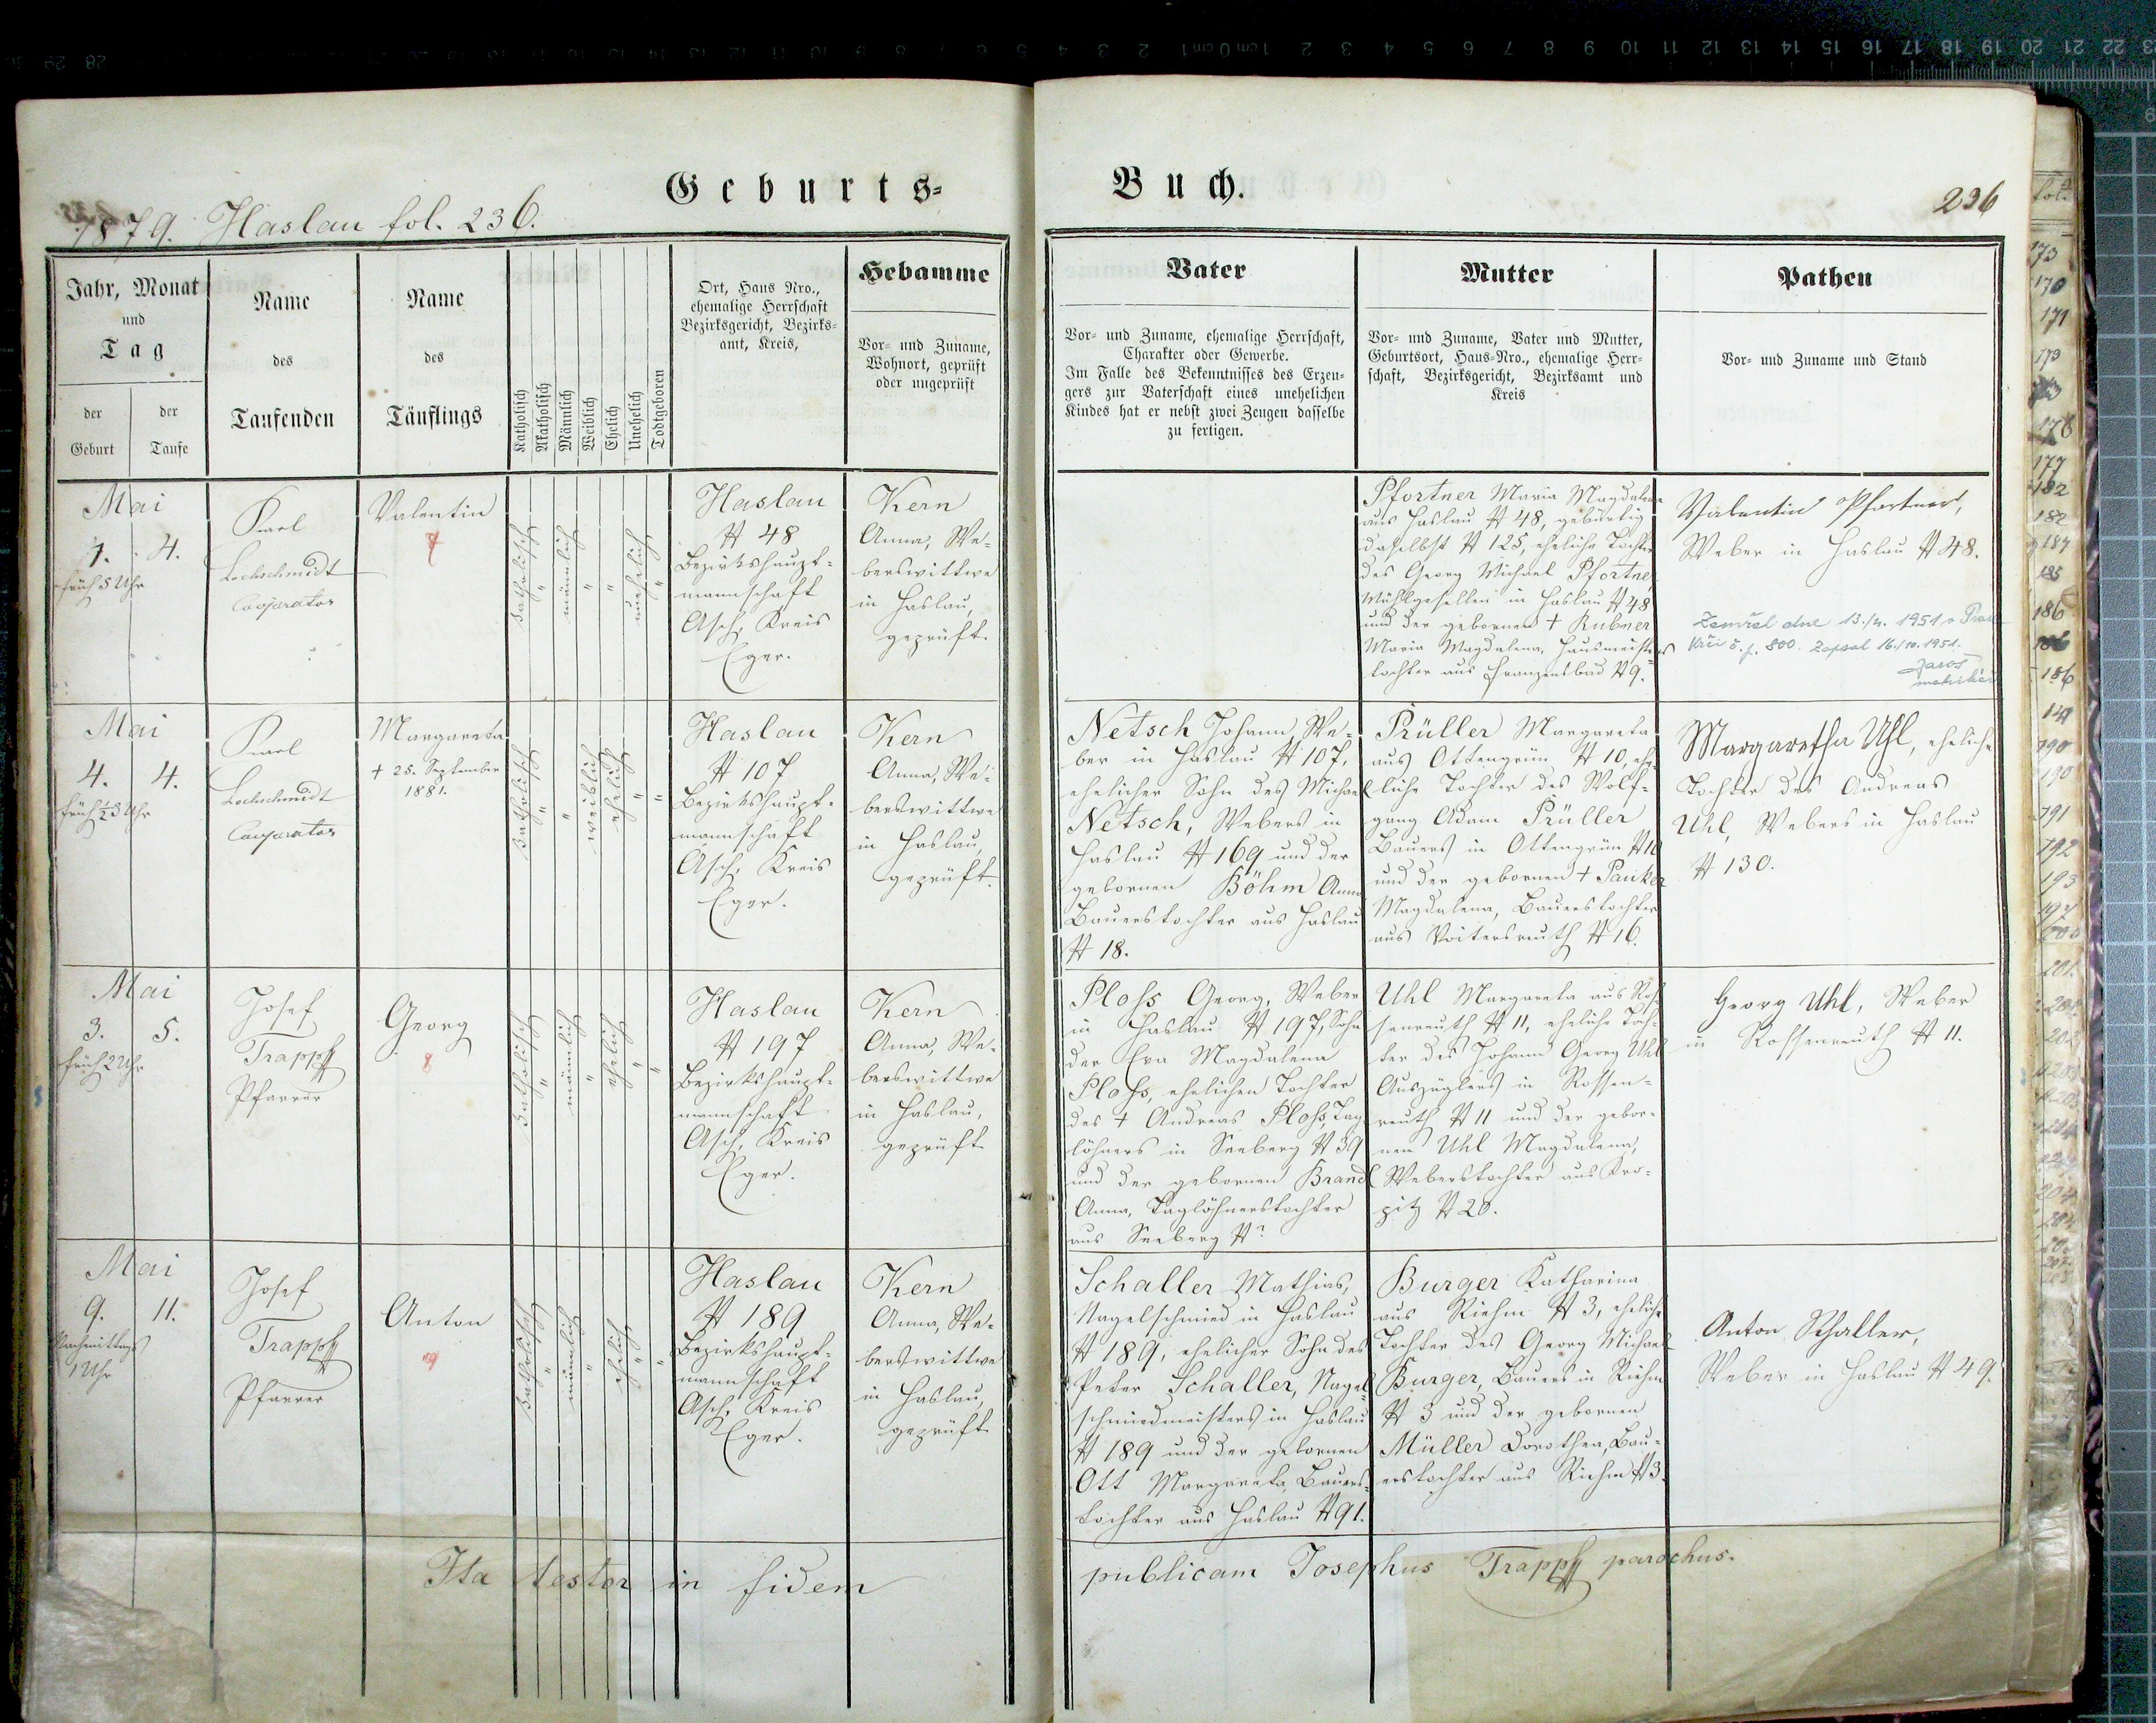 Geburts=
Buch.
1879. Haslau fol. 236.
236
Jahr, Monat
und
Tag
der
Geburt
der
Taufe
Name
des
Taufenden
Name
des
Täuflings
Katholisch
Akatholisch
Männlich
Weiblich
Ehelich
Unehelich
Todtgeboren
Ort, Haus Nro.,
ehemalige Herrschaft
Bezirksgericht, Bezirks=
amt, Kreis,
Hebamme
Vor= und Zuname,
Wohnort, geprüft
oder ungeprüft
Vater
Vor= und Zuname, ehemalige Herrschaft,
Charakter oder Gewerbe.
Im Falle des Bekenntnisses des Erzeu=
gers zur Vaterschaft eines unehelichen
Kindes hat er nebst zwei Zeugen dasselbe
zu fertigen.
Mutter
Vor= und Zuname, Vater und Mutter,
Geburtsort, Haus=Nro., ehemalige Herr=
schaft, Bezirksgericht, Bezirksamt und
Kreis
Pathen
Vor= und Zuname und Stand
Mai
1. 4.
früh 5 Uhr
Karl
Lochschmidt
Cooperator
Valentin
katholisch
"
männlich
"
"
unehelich
"
Haslau
N 48
Bezirkshaupt=
mannschaft
Asch, Kreis
Eger.
Kern
Anna, We=
berswittwe
in Haslau,
geprüft.
Pfortner Maria Magdalena
aus Haslau N 48, gebürtig
daselbst N 125, eheliche Tochter
des Georg Michael Pfortner
Mühlgesellen in Haslau N 48
und der gebornen + Rubner
Maria Magdalena, Hausmeisters
tochter aus Franzensbad N 9.
Valentin Pfortner,
Weber in Haslau N 48.
Zemřel dne 1951 v Praze
Krči č. p. 800. Zapsal 16./10. 1951.
Mai
4. 4.
früh ½3 Uhr
Karl
Lochschmidt
Cooperator
Margareta
+ 25. September
1881.
katholisch
"
"
weiblich
ehelich
"
"
Haslau
N 107
Bezirkshaupt=
mannschaft
Asch, Kreis
Eger.
Kern
Anna, We=
berswittwe
in Haslau,
geprüft.
Netsch Johann, We=
ber in Haslau N 107,
ehelicher Sohn des Michael
Netsch, Webers in
Haslau N 169 und der
gebornen Böhm Anna
Bauerstochter aus Haslau
N 18.
Prüller Margareta
aus Ottengrün N 10, ehe=
liche Tochter des Wolf=
gang Adam Prüller
Bauers in Ottengrün N 10
und der gebornen + Pauker
Magdalena, Bauerstochter
aus Voitersreuth N 16.
Margaretha Uhl, eheliche
Tochter des Andreas
Uhl, Webers in Haslau
N 130.
Mai
3. 5.
früh 2 Uhr
Josef
Trapp
Pfarrer
Georg
8
katholisch
"
männlich
"
ehelich
"
"
Haslau
N 197
Bezirkshaupt=
mannschaft
Asch, Kreis
Eger.
Kern
Anna, We=
berswittwe
in Haslau,
geprüft
Ploß Georg, Weber
in Haslau N 197, Sohn
der Eva Magdalena
Ploß, ehelichen Tochter
des + Andreas Ploß, Tag=
löhners in Seeberg N 39
und der gebornen Brandl
Anna, Taglöhnerstochter
aus Seeberg N ?
Uhl Margareta aus Ros=
senreuth N 11, eheliche Toch=
ter des Johann Georg Uhl
Auszüglers in Rossen=
reuth N 11 und der gebor=
nen Uhl Magdalena,
Weberstochter aus Kro=
pitz N 20.
Georg Uhl, Weber
in Rossenreuth N 11.
Mai
9. 11.
Nachmittags
1 Uhr
Josef
Trapp
Pfarrer
Anton
9
katholisch
"
männlich
"
ehelich
"
"
Haslau
N 189
Bezirkshaupt=
mannschaft
Asch, Kreis
Eger.
Kern
Anna, We=
berswittwe
in Haslau,
geprüft
Schaller Mathias,
Nagelschmied in Haslau
N 189, ehelicher Sohn des
Peter Schaller, Nagel=
schmiedmeisters in Haslau
N 189 und der gebornen
Ott Margareta, Bauers=
tochter aus Haslau N 91.
Burger Katharina
aus Riehm N 3, eheliche
Tochter des Georg Michael
Burger, Bauers in Riehm
N 3 und der gebornen
Müller Dorothea, Bau=
erstochter aus Riehm N 3.
Anton Schaller,
Weber in Haslau N 49.
Ita testor in fidem
publicam Josephus Trapp parochus.